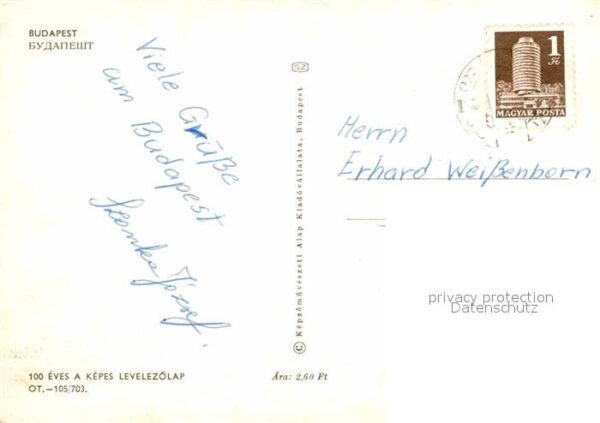 BUDAPEST
БУДАПЕШТ
Viele Grüße
am Budapest
József
SZ
© Képzőművészeti Alap Kiadóvállalata, Budapest
1
Ft
MAGYAR POSTA
Herrn
Erhard Weißenborn
privacy protection
Datenschutz
100 ÉVES A KÉPES LEVELEZŐLAP
OT.—105/703.
Ára: 2,60 Ft